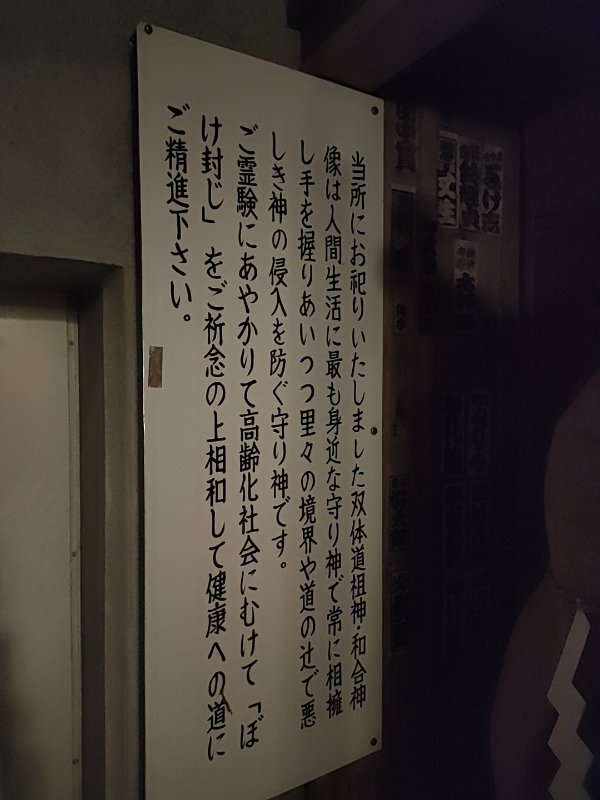 当所にお祀りいたしました双体道祖神・和合神
像は人間生活に最も身近な守り神で常に相擁
し手を握りあいつつ里々の境界や道の辻で悪
しき神の侵入を防ぐ守り神です。
ご霊験にあやかりて高齢化社会にむけて「ぼ
け封じ」をご祈念の上相和して健康への道に
ご精進下さい。